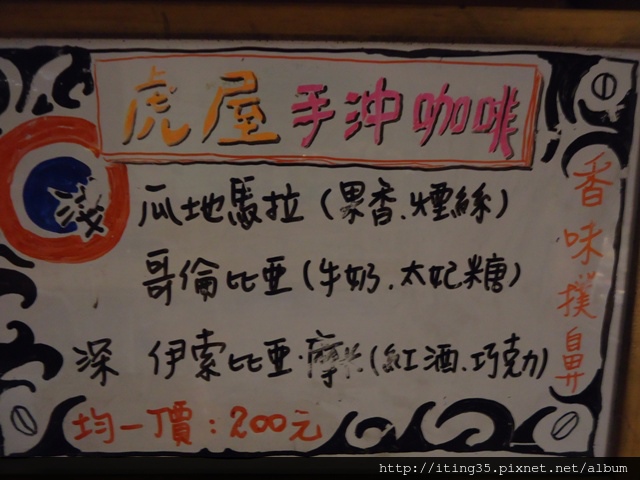 虎屋手沖咖啡
淺 瓜地馬拉(果香.煙絲)
哥倫比亞(牛奶.太妃糖)
深 伊索比亞.摩(紅酒.巧克力)
均一價:200元
香味撲鼻
http://iting35.pixnet.net/album